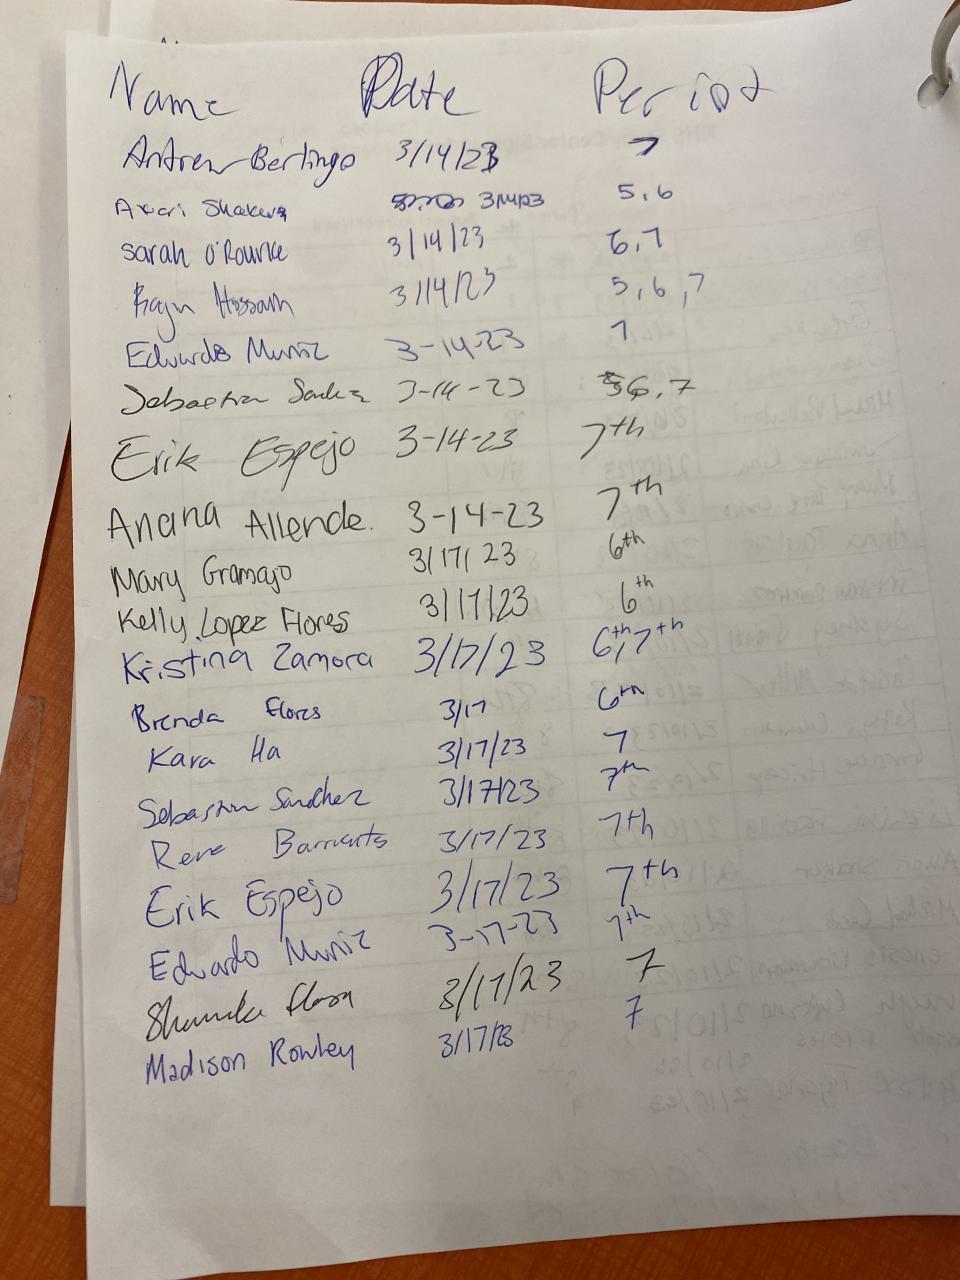 Name Date Period
Andrew Berlingo 3/14/23 7
Awari Shakur 3/14/23 5,6
Sarah O'Rourke 3/14/23 6,7
Hossain 3/14/23 5,6,7
Eduardo Muniz 3-14-23 7
Sebastian 3-14-23 6,7
Erik Espejo 3-14-23 7th
Anana Allende. 3-14-23 7th
Mary Gramajo 3/17/23 6th
Kelly Lopez Flores 3/17/23 6th
Kristina Zamora 3/17/23 6th,7th
Brenda Flores 3/17 6th
Kara Ha 3/17/23 7
Sebastian Sanchez 3/17/23 7th
Rene Barrientos 3/17/23 7th
Erik Espejo 3/17/23 7th
Eduardo Muniz 3-17-23 7th
3/17/23 7
Madison Rowley 3/17/23 7